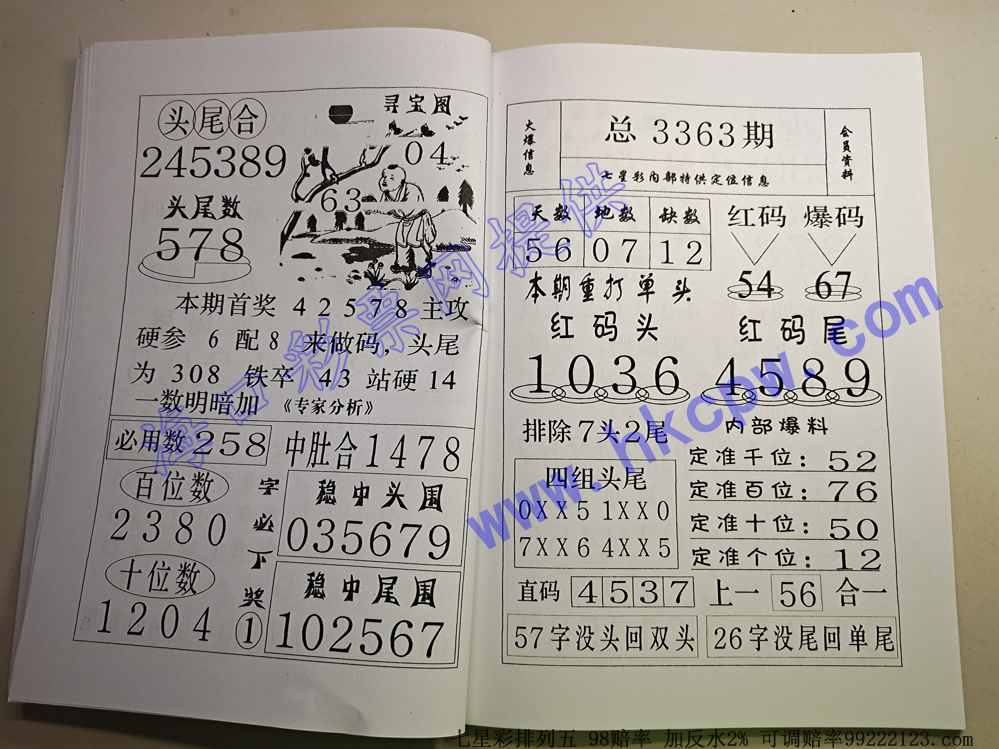 头尾合
245389
寻宝图
04
63
头尾数
578
本期首奖 42578主攻
硬参 6 配8 来做码，头尾
为 308 铁卒 43 站硬14
一数明暗加 《专家分析》
必用数258
中肚合1478
百位数
2380
十位数
1204
字必下奖①
稳中头围
035679
稳中尾围
102567
火爆信息
总 3363期
七星彩内部特供定位信息
会员资料
天数 地数 缺数
56 07 12
红码 爆码
54 67
本期重打单头
红码头
1036
红码尾
4589
排除7头2尾
内部爆料
四组头尾
0XX5 1XX0
7XX6 4XX5
定准千位：52
定准百位：76
定准十位：50
定准个位：12
直码 4537 上一 56 合一
57字没头回双头
26字没尾回单尾
海口彩票网提供
www.hkcpw.com
七星彩排列五 98赔率 加反水2% 可调赔率99222123.com